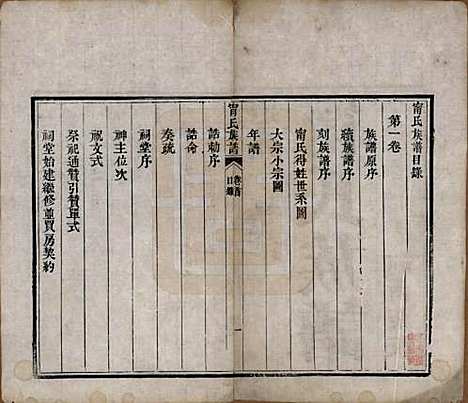 甯氏族譜目錄
第一卷
族譜原序
續族譜序
刻族譜序
甯氏得姓世系圖
大宗小宗圖
年譜
甯氏族譜
卷首
目錄
一
誥勅序
誥命
奏疏
祠堂序
神主位次
祝文式
祭祀通贊引贊單式
祠堂始建繼修並買房契約